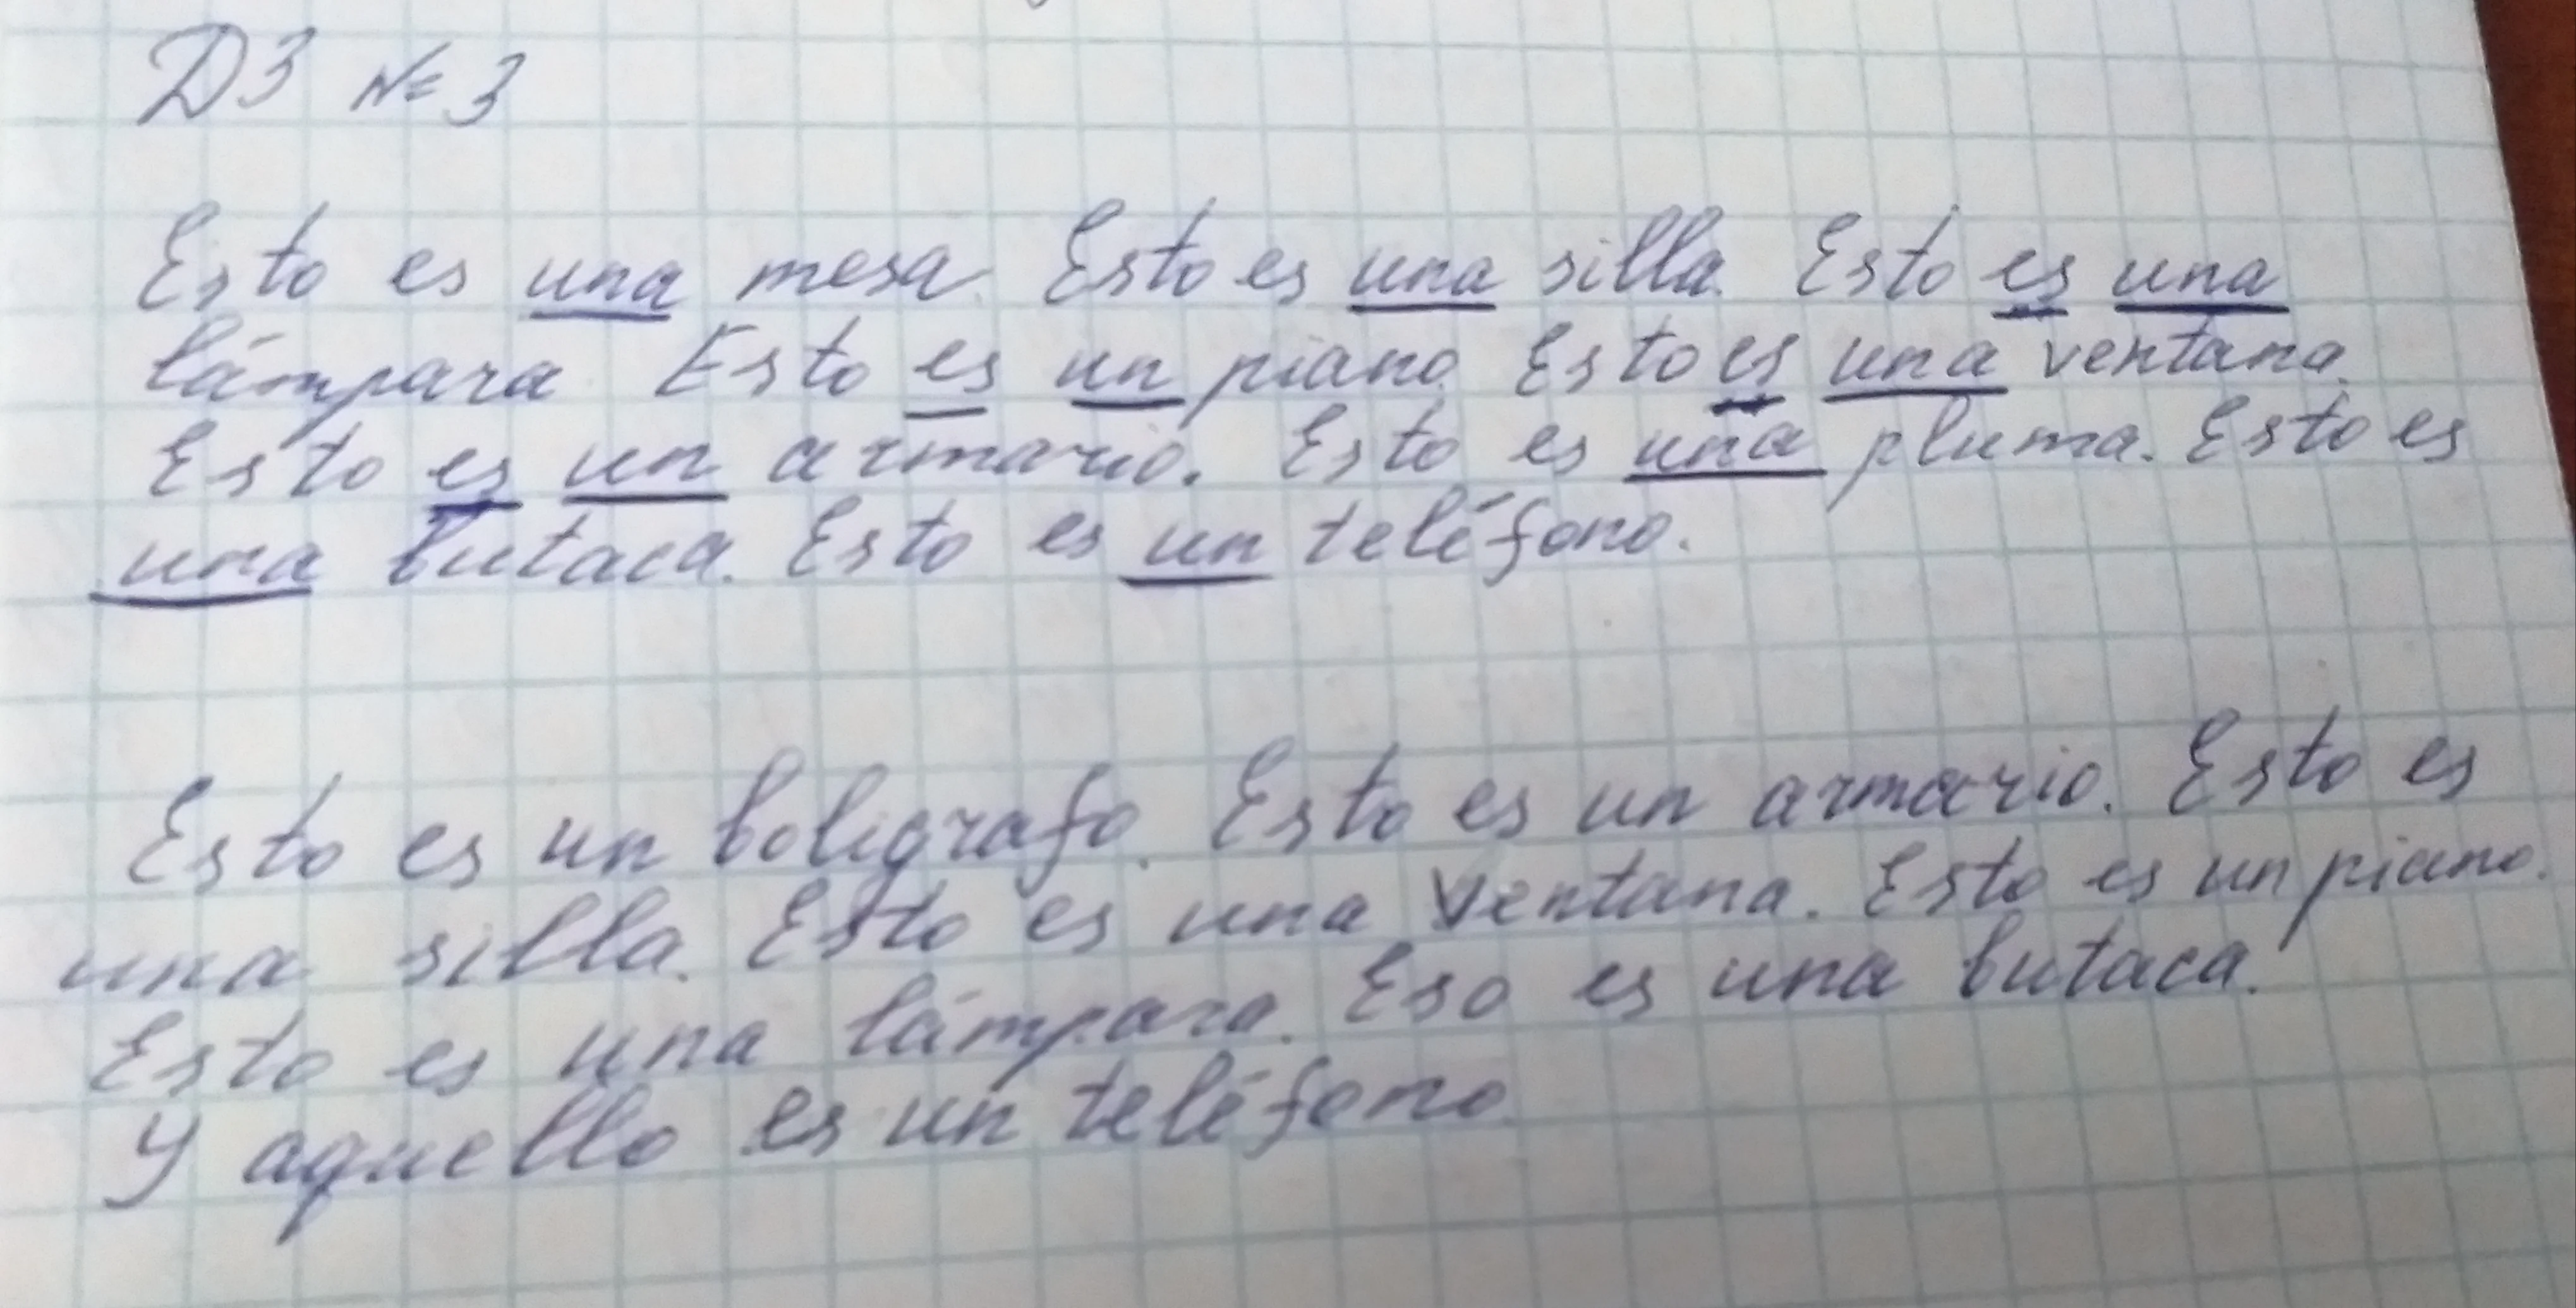 ДЗ № 3
Esto es una mesa. Esto es una silla. Esto es una
lámpara. Esto es un piano. Esto es una ventana.
Esto es un armario. Esto es una pluma. Esto es
una butaca. Esto es un teléfono.
Esto es un boligrafo. Esto es un armario. Esto es
una silla. Esto es una ventana. Esto es un piano.
Esto es una lámpara. Eso es una butaca.
Y aquello es un teléfono.